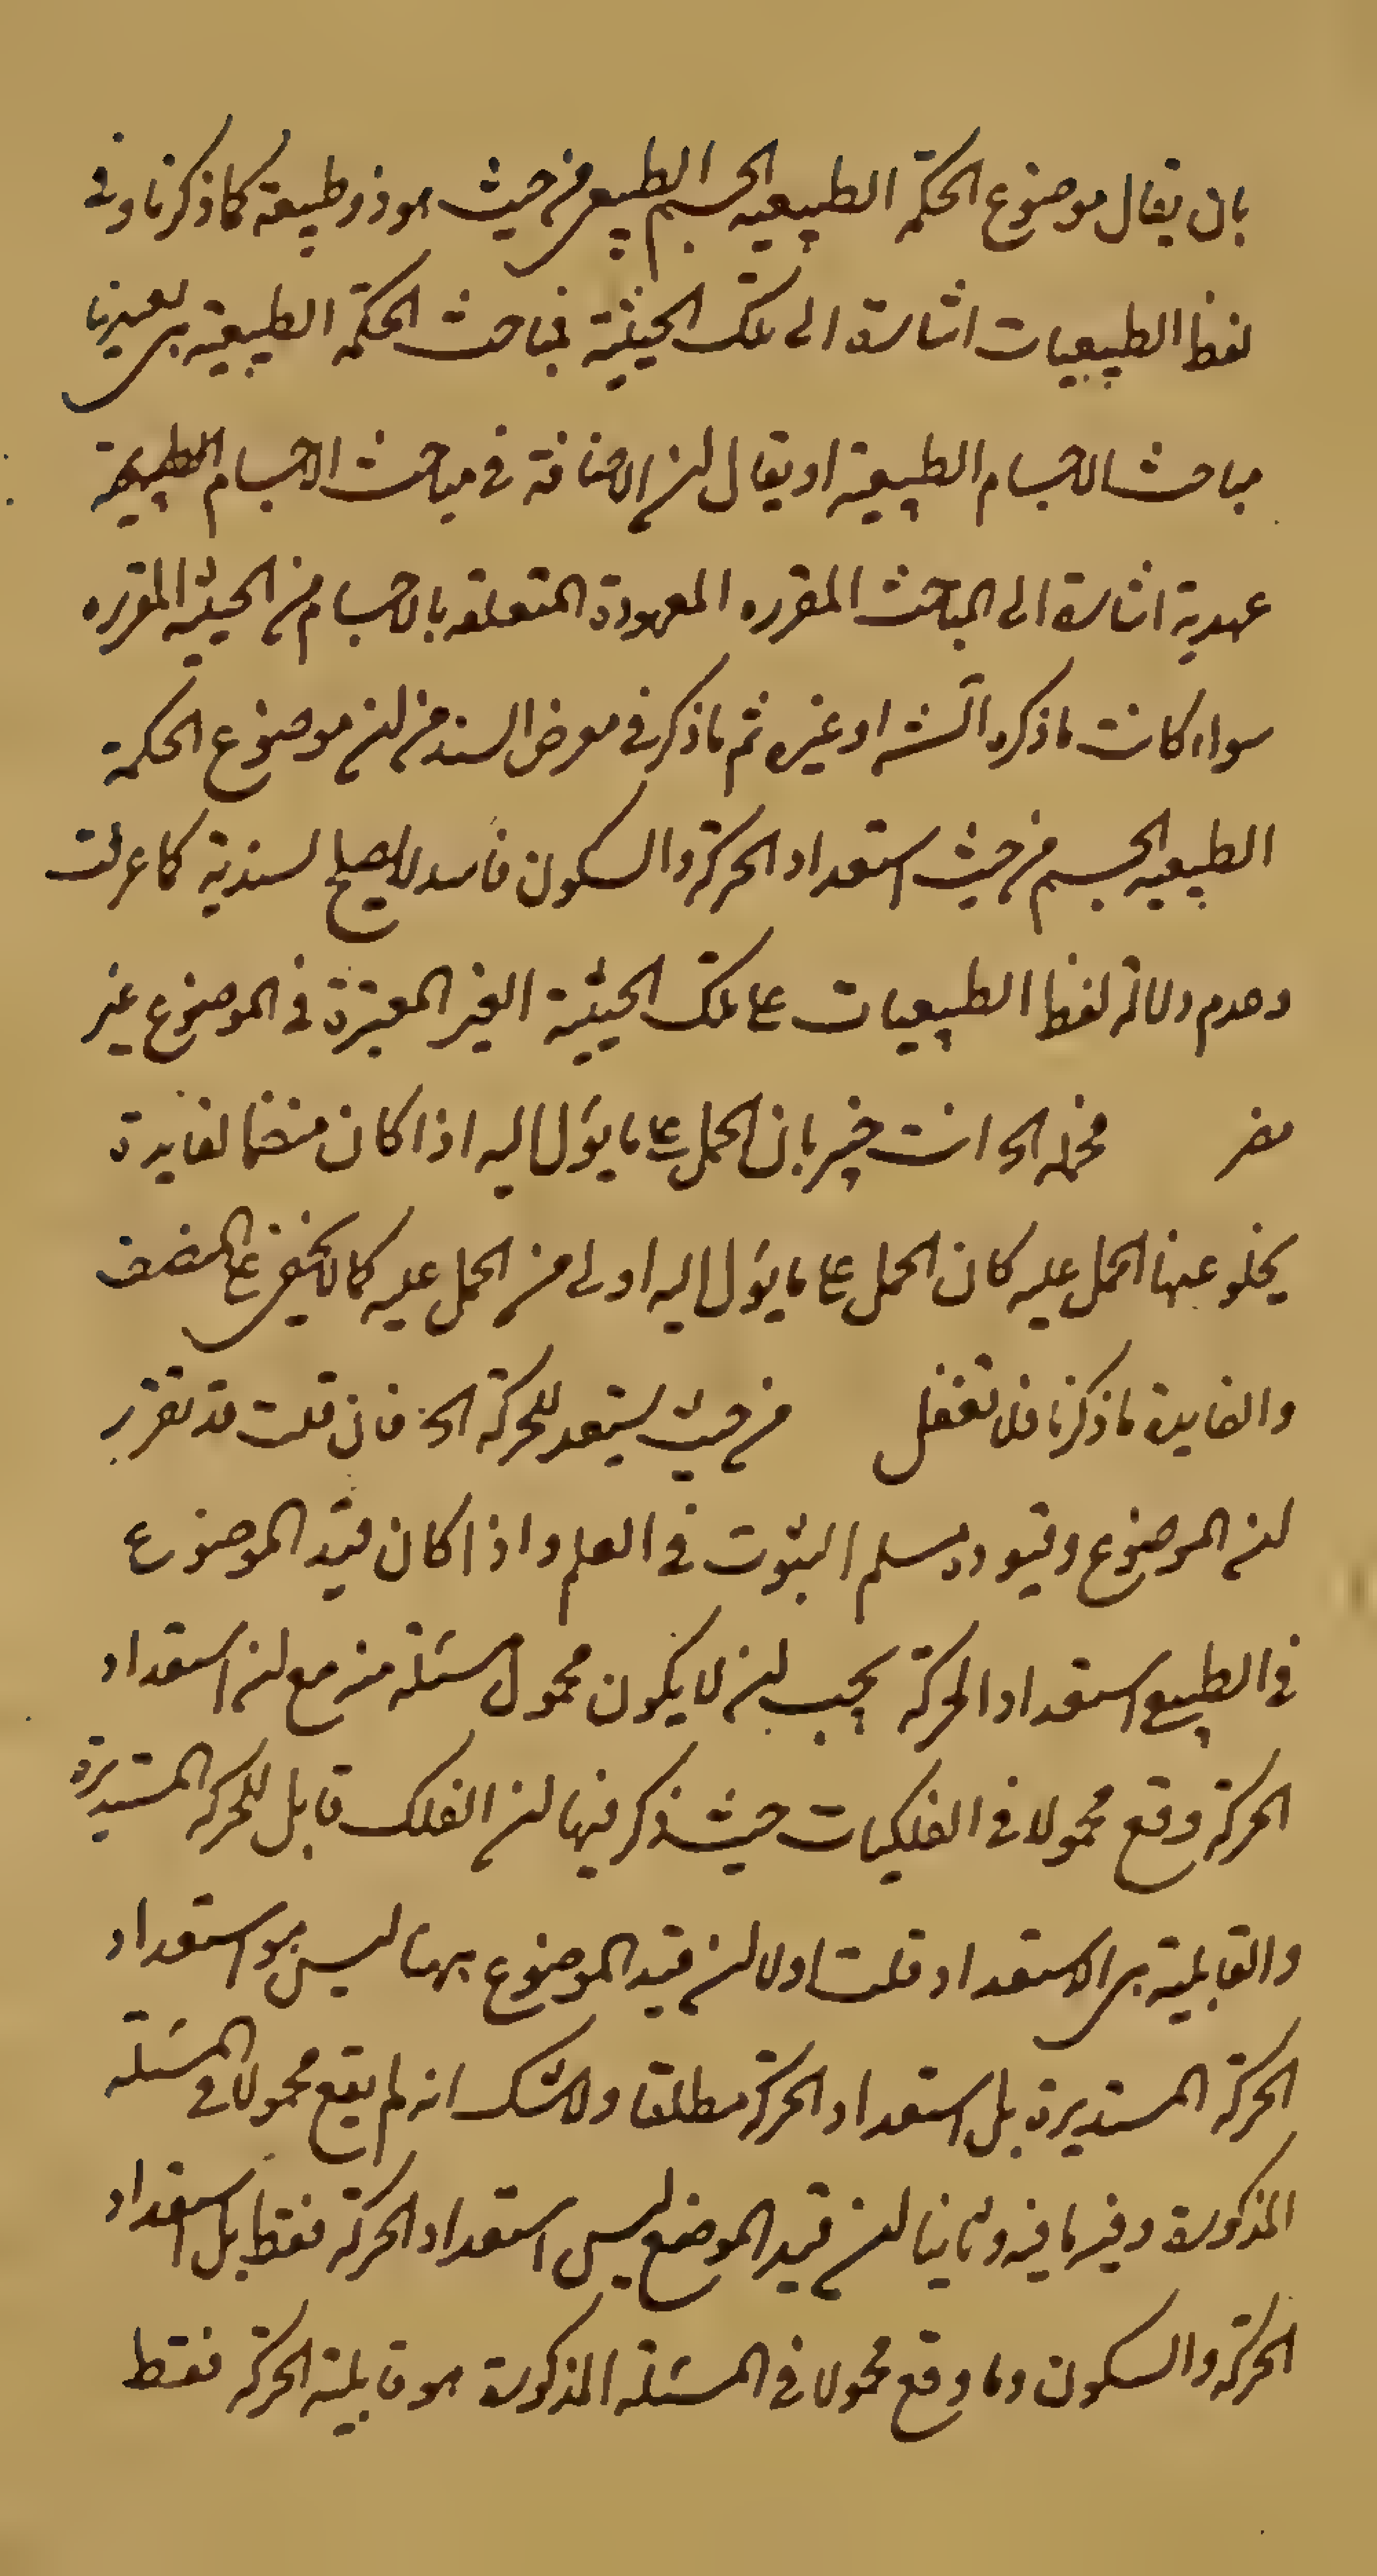 بان يقال موضوع الحكمة الطبيعيه الجسم الطبيعي من حيث هو ذو طبيعة كما ذكرنا وفي
لفظ الطبيعيات اشارة الى تلك الحيثية فمباحث الحكمة الطبيعية هي بعينها
مباحث الاجسام الطبيعية او يقال ان الاضافة في مباحث الاجسام الطبيعية
عهدية اشارة الى المباحث المقرره المعهودة المتعلقه بالاجسام من الحيثية المقرره
سواء كانت ما ذكره الشه او غيره ثم ما ذكر في معرض السند من ان موضوع الحكمة
الطبيعيه الجسم من حيث استعداد الحركة والسكون فاسد لا يصلح لسندية كما عرفت
وعدم دلالة لفظ الطبيعيات على تلك الحيثية الغير المعتبرة في الموضوع غير
مضر فحمله الخ انت خبير بان الحمل على ما يؤل اليه اذا كان متضمنا لفايدة
يخلو عنها الحمل عليه كان الحمل على ما يؤل اليه اولى من الحمل عليه كما لا يخفى على المنصف
والفايدة ما ذكرنا فلا تغفل من حيث يستعد للحركة الخ فان قلت قد تقرر
ان الموضوع وقيوده مسلم الثبوت في العلم واذا كان قيد الموضوع
في الطبيعي استعداد الحركة يجب ان لا يكون محمول مسئلة منه مع ان استعداد
الحركة وقع محمولا في الفلكيات حيث ذكر فيها ان الفلك قابل للحركة المستديرة
والقابلية هي الاستعداد قلت اولا ان قيد الموضوع ههنا ليس هو استعداد
الحركة المستديرة بل استعداد الحركة مطلقا ولا شك انه لم يقع محمولا في المسئلة
المذكورة وفيه ما فيه وثانيا ان قيد الموضع ليس استعداد الحركة فقط بل استعداد
الحركة والسكون وما وقع محمولا في المسئلة المذكورة هو قابلية الحركة فقط